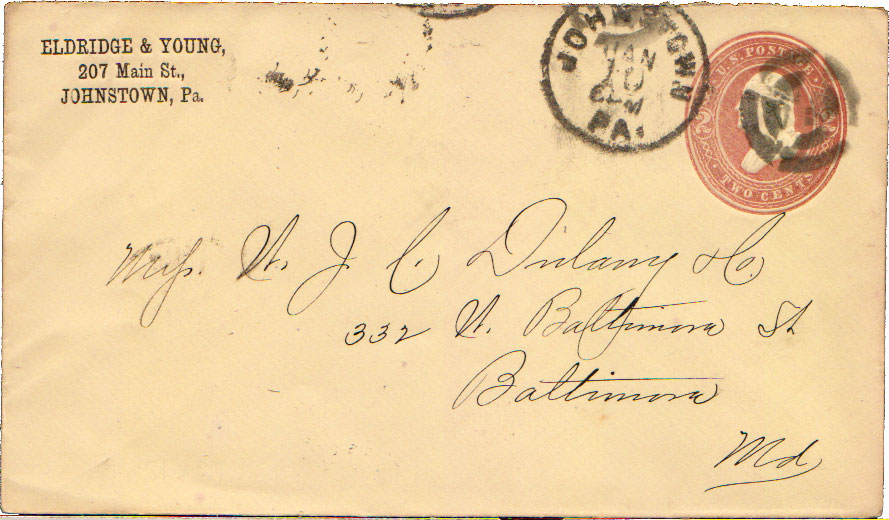 ELDRIDGE & YOUNG,
207 Main St.,
JOHNSTOWN, Pa.
JOHNSTOWN
JAN
PA.
U.S. POSTAGE
TWO CENTS
J. C. Dulany & Co.
332 W. Baltimore St
Baltimore
Md